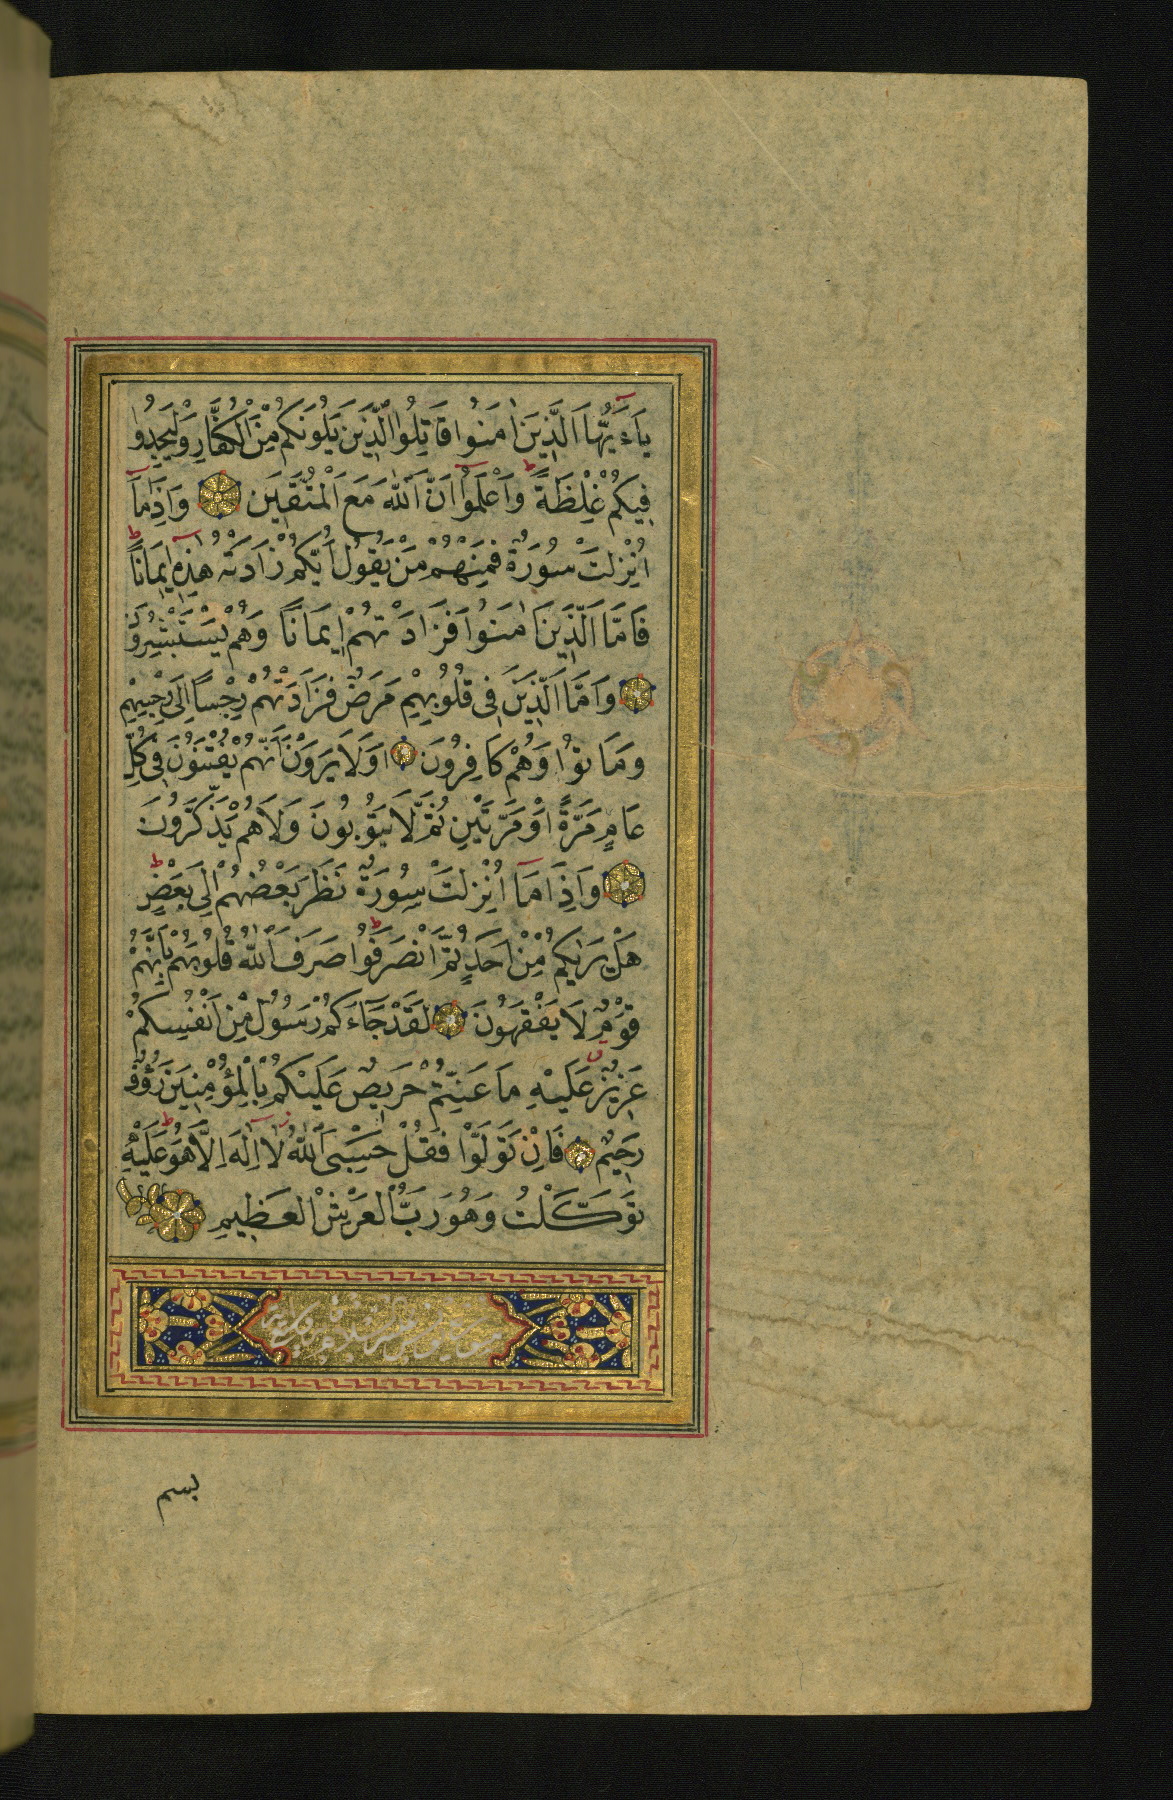 يَاءَيُّهَا الَّذِينَ اٰمَنُوا قَاتِلُوا الَّذِينَ يَلُونَكُمْ مِنَ الْكُفَّارِ وَلْيَجِدُوا
فِيكُمْ غِلْظَةً وَاعْلَمُوا اَنَّ اللّٰهَ مَعَ الْمُتَّقِينَ وَاِذَا مَا
اُنْزِلَتْ سُورَةٌ فَمِنْهُمْ مَنْ يَقُولُ اَيُّكُمْ زَادَتْهُ هٰذِهِ اِيمَانًا
فَاَمَّا الَّذِينَ اٰمَنُوا فَزَادَتْهُمْ اِيمَانًا وَهُمْ يَسْتَبْشِرُونَ
وَاَمَّا الَّذِينَ فِي قُلُوبِهِمْ مَرَضٌ فَزَادَتْهُمْ رِجْسًا اِلَى رِجْسِهِمْ
وَمَاتُوا وَهُمْ كَافِرُونَ اَوَلَا يَرَوْنَ اَنَّهُمْ يُفْتَنُونَ فِي كُلِّ
عَامٍ مَرَّةً اَوْ مَرَّتَيْنِ ثُمَّ لَا يَتُوبُونَ وَلَا هُمْ يَذَّكَّرُونَ
وَاِذَا مَا اُنْزِلَتْ سُورَةٌ نَظَرَ بَعْضُهُمْ اِلَى بَعْضٍ
هَلْ يَرٰيكُمْ مِنْ اَحَدٍ ثُمَّ انْصَرَفُوا صَرَفَ اللّٰهُ قُلُوبَهُمْ بِاَنَّهُمْ
قَوْمٌ لَا يَفْقَهُونَ لَقَدْ جَاءَكُمْ رَسُولٌ مِنْ اَنْفُسِكُمْ
عَزِيزٌ عَلَيْهِ مَا عَنِتُّمْ حَرِيصٌ عَلَيْكُمْ بِالْمُؤْمِنِينَ رَؤُفٌ
رَحِيمٌ فَاِنْ تَوَلَّوْا فَقُلْ حَسْبِيَ اللّٰهُ لَا اِلٰهَ اِلَّا هُوَ عَلَيْهِ
تَوَكَّلْتُ وَهُوَ رَبُّ الْعَرْشِ الْعَظِيمِ
بسم